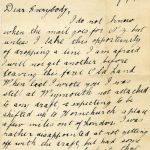 Dear Everybody,
I do not know
when the mail goes for I
unless I take this opportunity
of dropping a line I am afraid
I will not get another before
leaving this for old and
When last I wrote you I was
still at Weymouth not attached
to any draft, & expecting to be
shifted up to Hornchurch a place
a few miles out of London. I was
rather disappointed at not getting
off with the draft, but had some